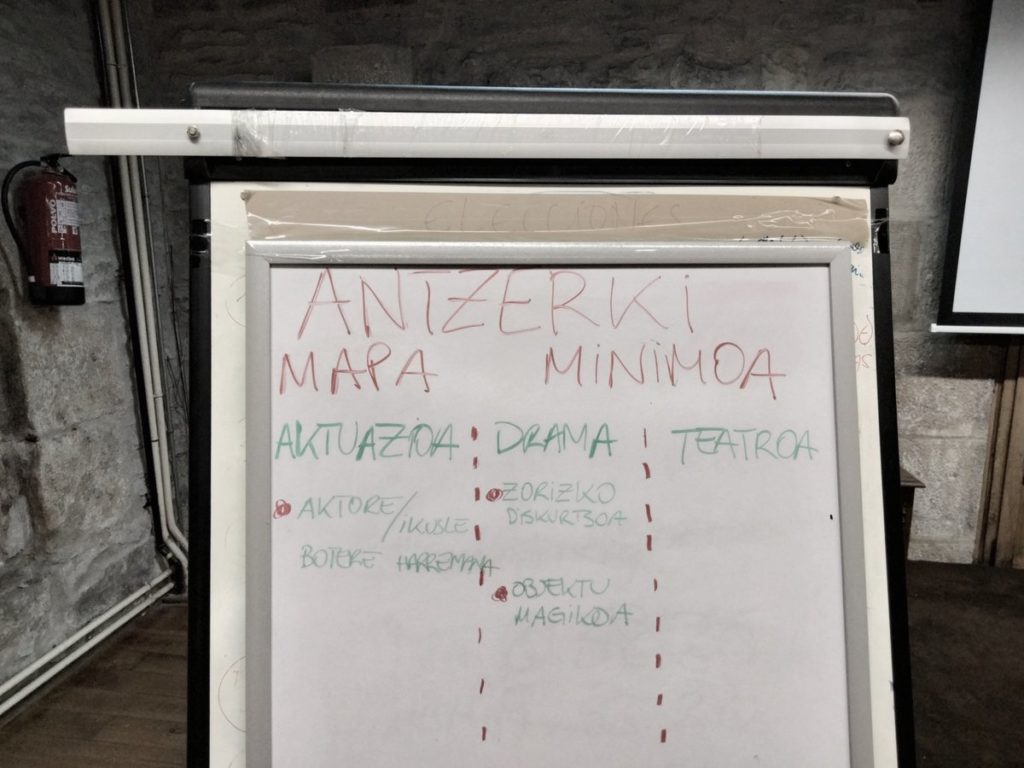 ELECCIONES
ANTZERKI
MAPA MINIMOA
AKTUAZIOA DRAMA TEATROA
AKTORE/IKUSLE
BOTERE HARREMANA
ZORIZKO
DISKURTSOA
OBJEKTU
MAGIKOA
POLVO